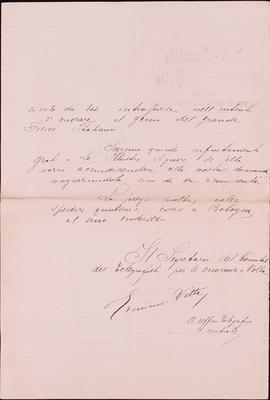 civile da lei intrapresa nell'intento
d'onorare il genio del grande
Fisico Italiano
Saremo quindi infinitamente
grati a Lei Illustre Signore se Ella
vorrà accondiscendere alla nostra domanda
ringraziandola sin da ora
La prego inoltre voler
spedire quanto a Bologna
al mio indirizzo
Il Segretario del Comitato
dei Telegrafisti per le onoranze a Volta
Erminio Vitta
Ufficio Telegrafico
Centrale